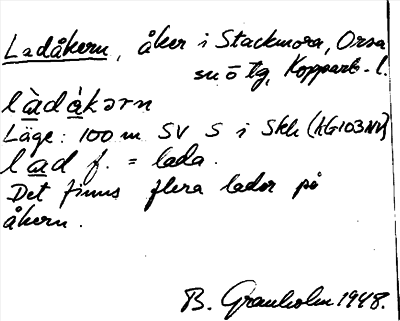 Ladåkern, åker i Stackmora, Orsa
sn ö tg, Kopparb. l.
làdàkərn
Läge: 100 m SV S i Skk (AG103NV)
lad f. = lada.
Det finns flera lador på
åkern.
B. Granholm 1948.